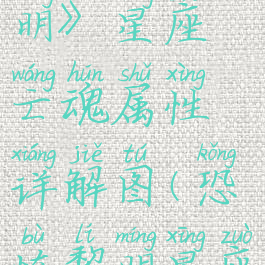 明》星座
wáng hún shǔ xìng
亡魂属性
xiáng jiě tú kǒng
详解图(恐
bù lí míng xīng zuò
怖黎明星座